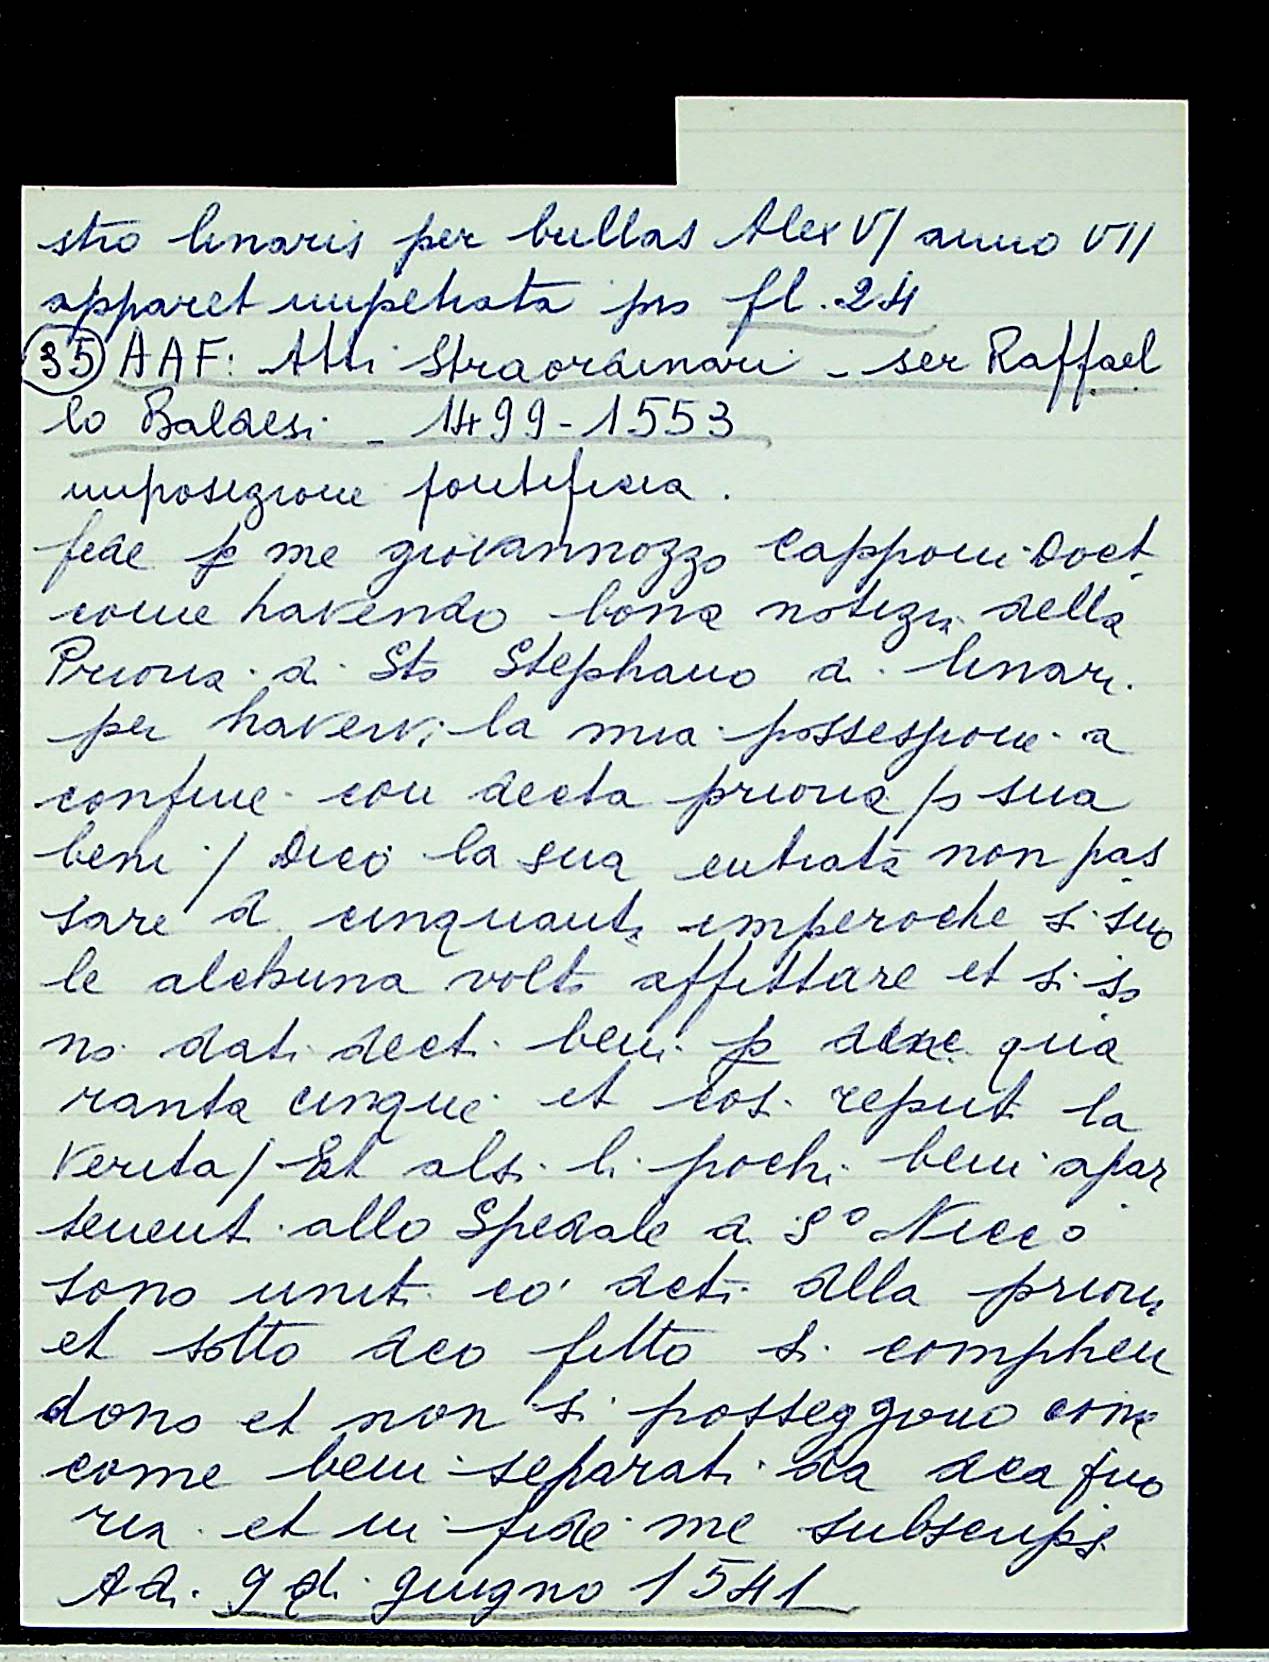 stro linaris per bullas Alex VI anno VII
apparet impetrata pro fl. 24
35 AAF: Atti Straordinari - ser Raffael
lo Baldesi - 1499-1553
imposizione pontificia.
fede p me giovannozzo Capponi Doct
come havendo bona notizia della
Prioria di Sto Stephano a linari
per havervi la mia possessione a
confine con decta prioria /o sua
beni / Dico la sua entrata non pas
sare d cinquanta imperoche si suo
le alchuna volta affittare et si so
no dati decti beni p quia
ranta cinque et cosi reputo la
verita / Et alsi li pochi beni apar
tenenti allo Spedale di So Nicco
sono uniti co' decti alla prioria
et sotto dco fitto si comphen
dono et non si posseggono come
come beni separati da dca prio
ria et in fide me subscripsi
Adi 9 di giugno 1541